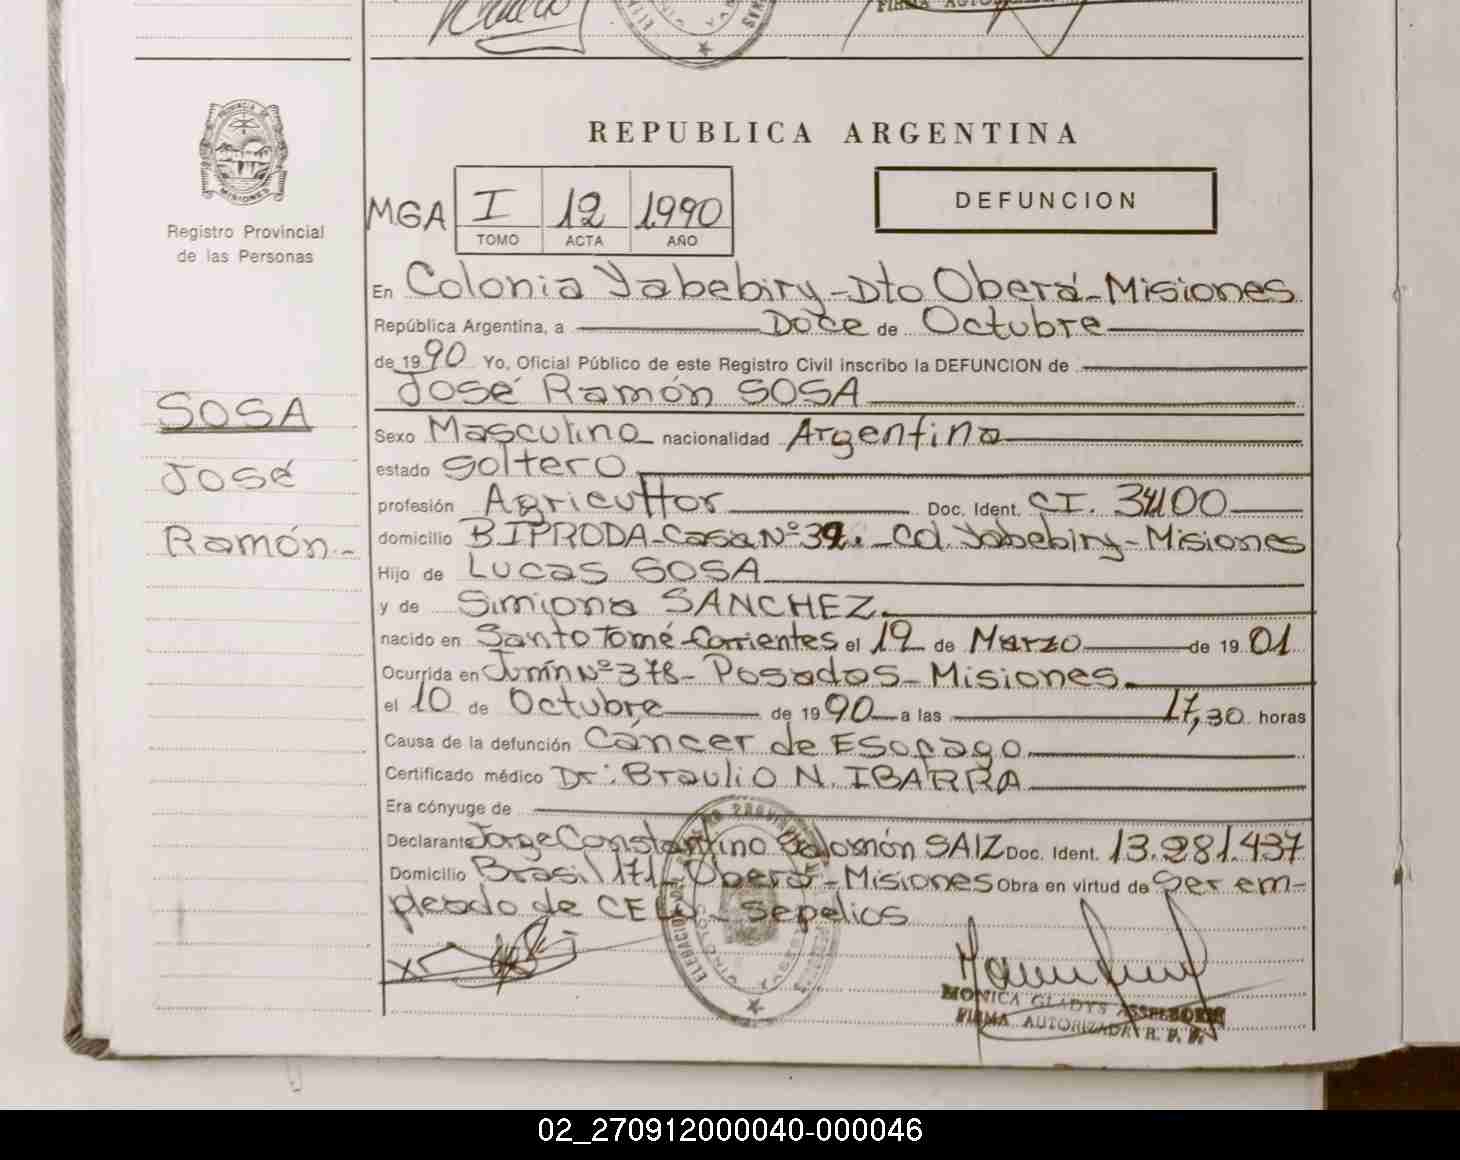 REPUBLICA ARGENTINA
PROVINCIA DE
MISIONES
Registro Provincial
de las Personas
MGA I 12 1990
TOMO ACTA AÑO
DEFUNCION
En Colonia Yabebiry - Dto Oberá - Misiones
República Argentina, a Doce de Octubre
de 19 90 Yo, Oficial Público de este Registro Civil inscribo la DEFUNCION de
José Ramón SOSA
SOSA
José
Ramón -
Sexo Masculino nacionalidad Argentina
estado Soltero
profesión Agricultor Doc. Ident. CI.
domicilio BIPRODA - Casa Nº - Col. Yabebiry - Misiones
Hijo de Lucas SOSA
y de Simiona SANCHEZ
nacido en Santo Tomé - Corrientes el 12 de Marzo de 19 01
Ocurrida en Junín Nº 378 - Posadas - Misiones
el 10 de Octubre de 19 90 a las 17,30 horas
Causa de la defunción Cáncer de Esofago
Certificado médico Dr: Braulio N. IBARRA
Era cónyuge de
Declarante Jorge Constantino Salomón SAIZ Doc. Ident. 13.281.437
Domicilio Brasil 171 - Oberá - Misiones Obra en virtud de Ser em-
pleado de CELO - Sepelios
MONICA GLADYS
FIRMA AUTORIZADA R. P. P.
02_270912000040-000046